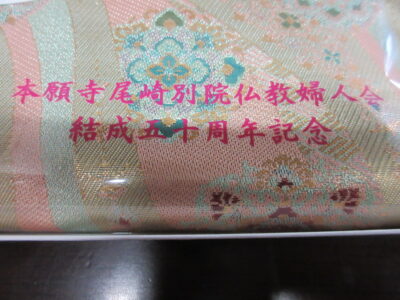 本願寺尾崎別院仏教婦人会
結成五十周年記念